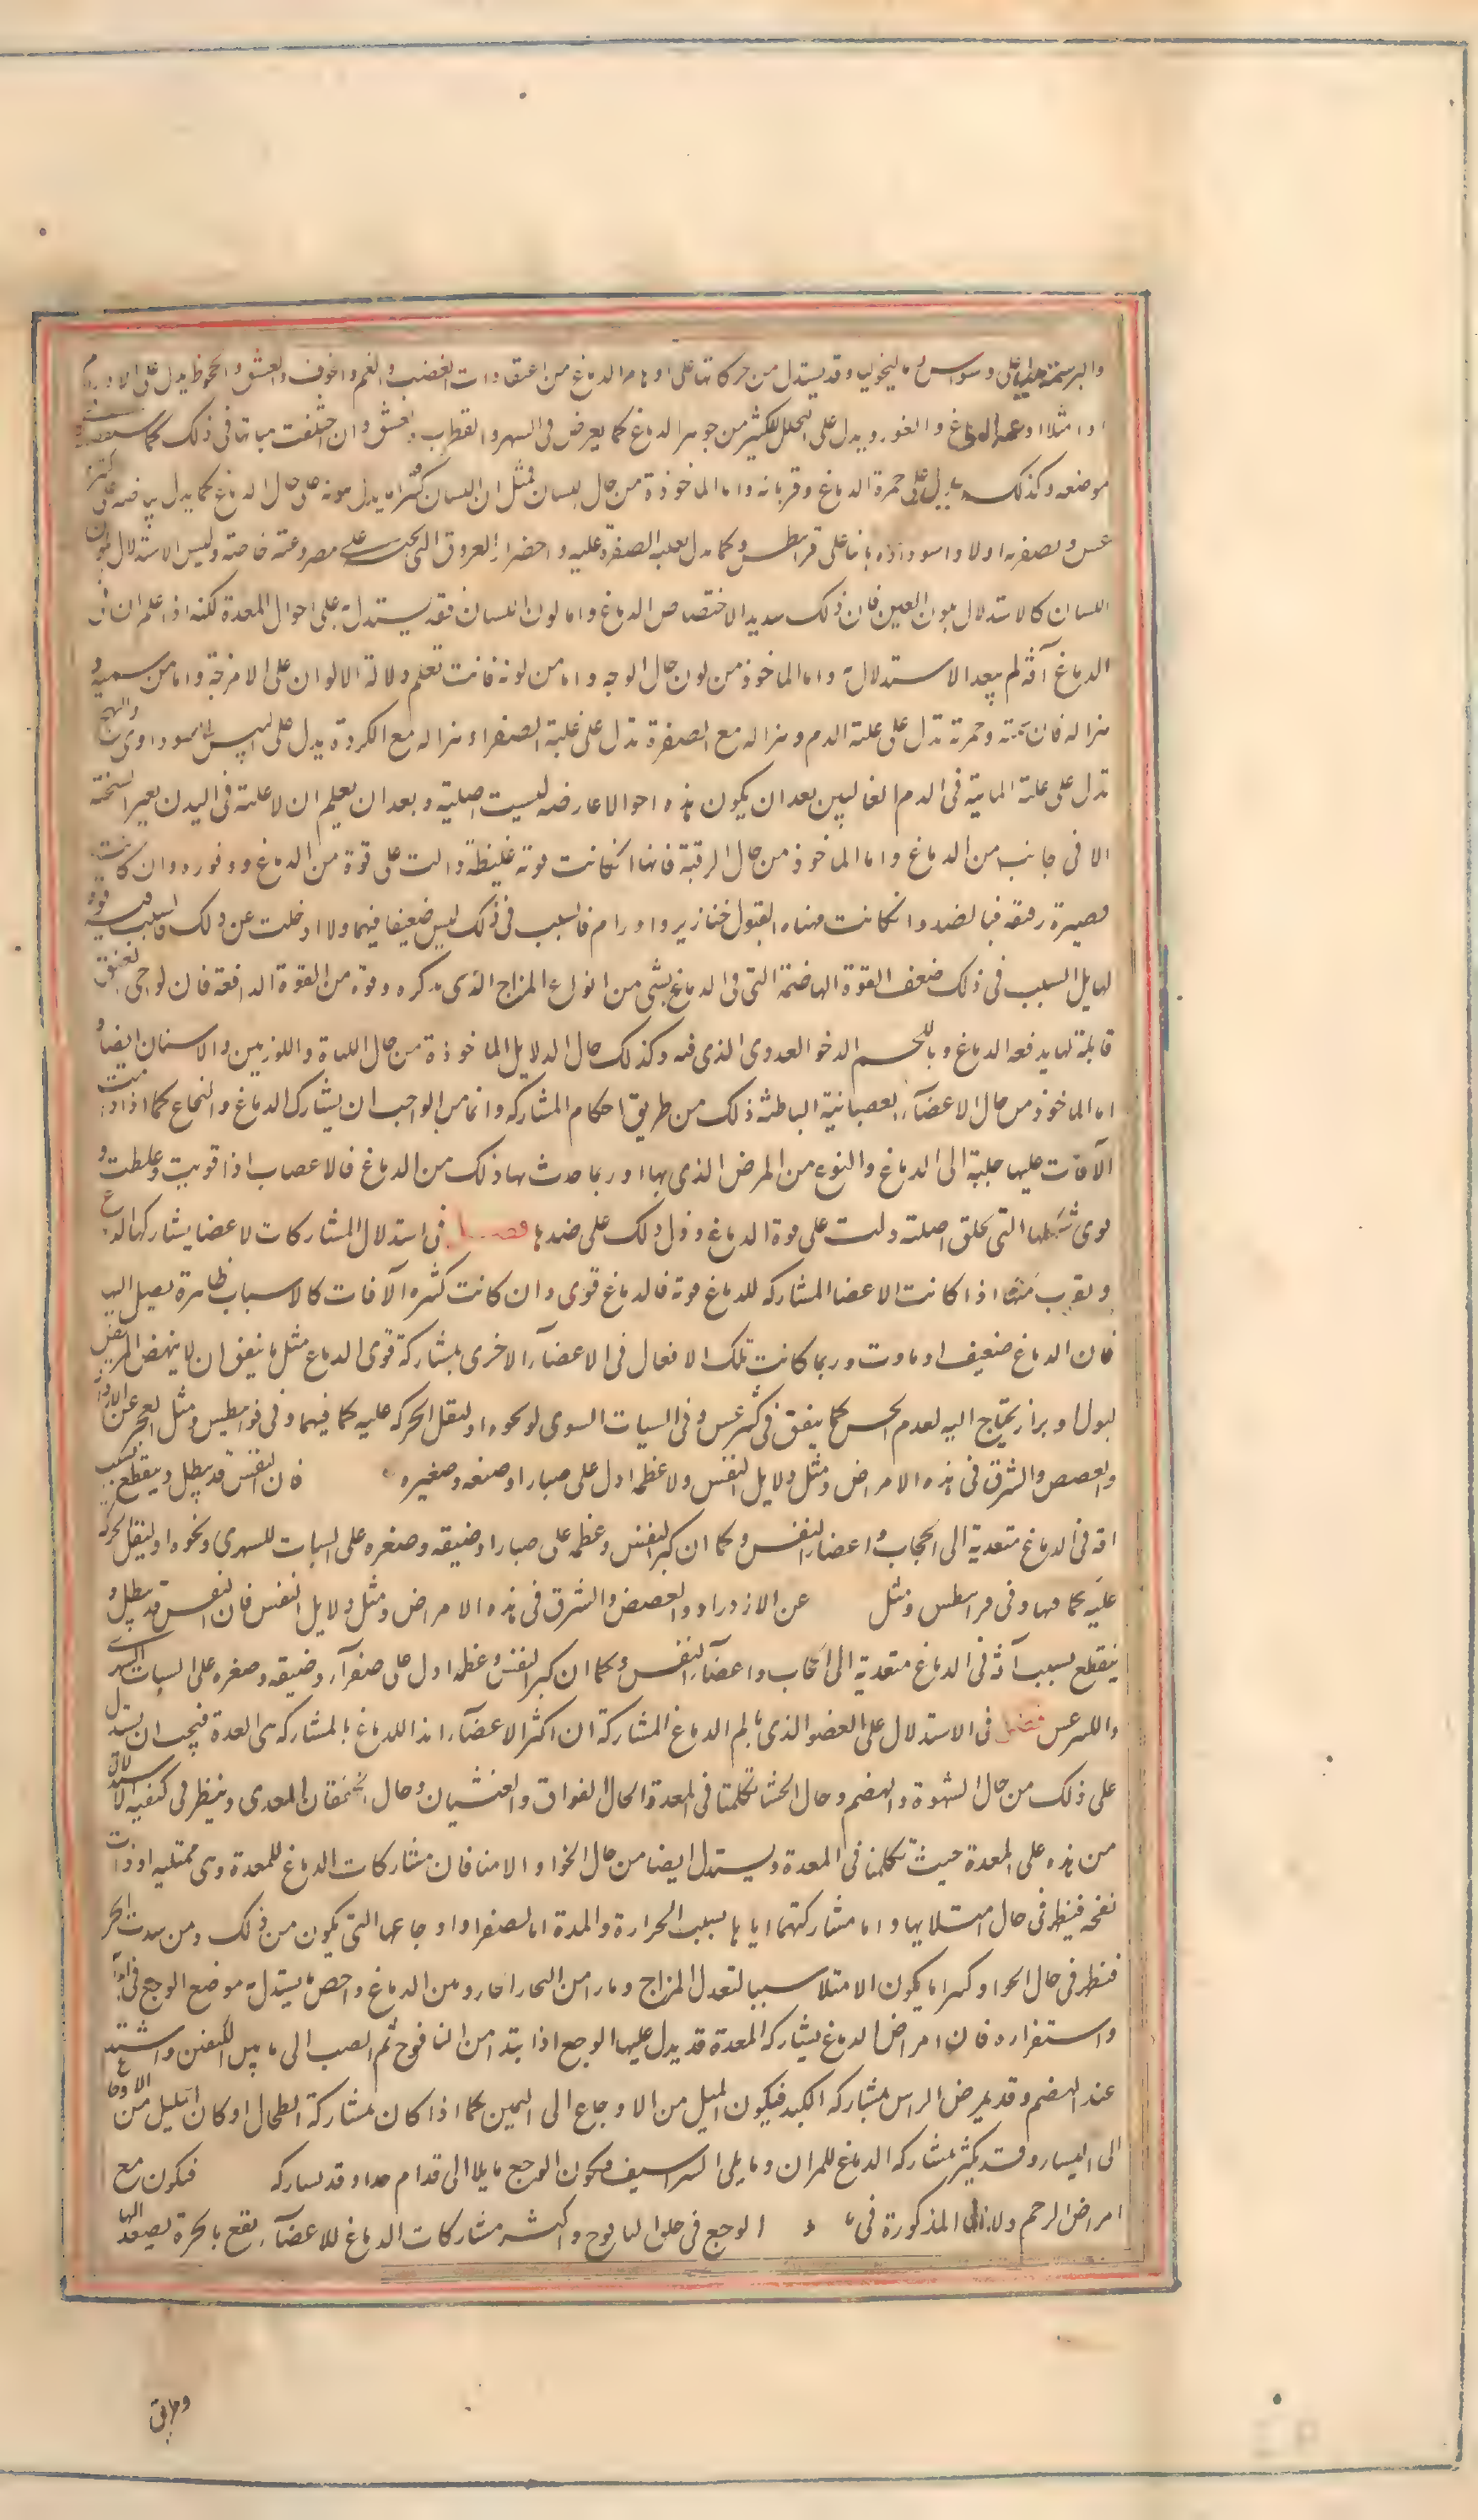 والبرسمة على وسواس مالیخولیا وقد يستدل من حركاتها على اوهام الدماغ من اعتقادات الغضب والغم والخوف والعشق والجحوظ يدل على الاورام
او امتلا اوعية الدماغ والغور ويدل على التحلل الكثير من جوهر الدماغ كما يعرض فى السهر والقطرب والعشق وان اختلفت هياتها فى ذلك كما ستعرفه فى
موضعه وكذلك يدل على حمرة الدماغ وقربانه واما الماخوذة من حال اللسان فمثل ان اللسان كثيرا ما يدل لونه على حال الدماغ كما يدل ببياضه على
وبصفرته اولا واسوداده ثانيا على قرانيطس وكما يدل بغلبة الصفرة عليه واخضرار العروق التى تحته على مصروعية خاصة وليس الاستدلال بلون
اللسان كالاستدلال بلون العين فان ذلك شديد الاختصاص الدماغ واما لون اللسان فقد يستدل به على احوال المعدة لكنه اذا علم ان فى
الدماغ آفة لم يبعد الاستدلال به واما الماخوذ من لون حال الوجه واما من لونه فانت تعلم دلالة الالوان على الامزجة واما من سمنه و
هزاله فان سمنته وحمرته تدل على غلبة الدم وهزاله مع الصفرة تدل على غلبة الصفراء وهزاله مع الكردة يدل على اليبس السوداوى والتهبج
تدل على غلبة المائية فى الدم الغالبين بعد ان يكون هذه احوالا عارضة ليست اصلية وبعد ان يعلم ان لا علة فى البدن بغير السحنة
الا فى جانب من الدماغ واما الماخوذ من حال الرقبة فانها انكانت قوية غليظة دالت على قوة من الدماغ ووفوره وان كانت
قصيرة رقيقة فبالضد وانكانت مهياة القبول خنازير واورام فالسبب فى ذلك ليس ضعيفا فيهما ولا اذا خلت عن ذلك فالسبب فيه قوة
لها بل السبب فى ذلك ضعف القوة الهاضمة التى فى الدماغ بشى من انواع المزاج الذى نذكره وقوة من القوة الدافعة فان لواحى العنق
قابلة لما يدفعه الدماغ وباللحم الرخو الغددى الذى فيه وكذلك حال الدلايل الماخوذة من حال اللهاة واللوزتين والاسنان ايضا و
اما الماخوذ من حال الاعضآء العصبانية الباطنة ذلك من طريق احكام المشاركة وانها من الواجب ان يشارك الدماغ والنخاع كما اذا دامت
الآفات عليها جلبة الى الدماغ والنوع من المرض الذى بها اوربما حدث بها ذلك من الدماغ فالاعصاب اذا قويت وغلظت و
قوى مسلكها التى تخلق اصلية دلت على قوة الدماغ ودل ذلك على ضدها فصل فى استدلال المشاركات لاعضا يشاركها الدماغ
ويقرب منها اذا كانت الاعضا المشاركة للدماغ قوية فالدماغ قوى وان كانت كثيرة الآفات كالاسباب ظاهرة يصل اليها
فان الدماغ ضعيف او ماوت وربما كانت تلك الافعال فى الاعضآء الاخرى بمشاركة قوى الدماغ مثل ما يتفق ان لا ينهض المريض
لبول او براز يحتاج اليه لعدم الحس كما يتفق فى ليثرغس وفى السبات السهرى ونحوه او لثقل الحركة عليه كما فيهما وفى قرانيطس ومثل العجز عن الازدراد
والغصص والشرق فى هذه الامراض ومثل دلايل النفس ولا عظمه ادل على صبارا وضيقه وصغيره فان النفس قد يبطل وينقطع بسبب
افة فى الدماغ متعدية الى الحجاب واعضاء النفس وكما ان كبر النفس وعظمه على صبارا وضيقه وصغره على السبات للسهرى ونحوه او ليقل الحركة
عليه كما فيها وفى قرانيطس ومثل عن الازدراد والغصص والشرق فى هذه الامراض ومثل دلايل النفس فان النفس قد يبطل و
ينقطع بسبب آفة فى الدماغ متعدية الى الحجاب واعضآء النفس وكما ان كبر النفس وعظمه ادل على صفرآء وضيقه وصغره على السبات السهرى
والليثرغس فصل فى الاستدلال على العضو الذى يالم الدماغ المشاركة ان اكثر الاعضآء ايذا للدماغ بالمشاركة هى المعدة فيجب ان يستدل
على ذلك من حال الشهوة والهضم وحال الجشا تكلمنا فى المعدة الحال الفواق والغثيان وحال الخفقان المعدى وينظر فى كيفية الاستدلال
من هذه على المعدة حيث تكلمنا فى المعدة ويستدل ايضا من حال الخوا والامتلا فان مشاركات الدماغ للمعدة وهى ممتلئة او ذات
نفخة فينظر فى حال امتلائها واما مشاركتهما اياها بسبب الحرارة والمدة اما لصفرا واوجاعها التى يكون من ذلك ومن شدة الحر
فينظر فى حال الخوا وكثيرا ما يكون الامتلا سببا لتعدل المزاج ومارا من البخار الحار ومن الدماغ واخص ما يستدل به موضع الوجع فى ابتدائه
واستقراره فان امراض الدماغ يشاركه المعدة قد يدل عليها الوجع اذا ابتدا من اليافوخ ثم انصب الى ما بين الكتفين واشتد
عند الهضم وقد يمرض الراس بمشاركة الكبد فيكون الميل من الاوجاع الى اليمين كما اذا كان بمشاركة الطحال او كان الميل من الاوجاع
الى اليسار وقد يكثر مشاركة الدماغ للمراق وما يلى الشراسيف ويكون الوجع مايلا الى قدام جدا وقد يشاركه فيكون مع
امراض الرحم ودلايلها المذكورة فى الوجع فى حلول اليافوخ واكثر مشاركات الدماغ للاعضآء يقع بابخرة يصعد اليها
وطريق